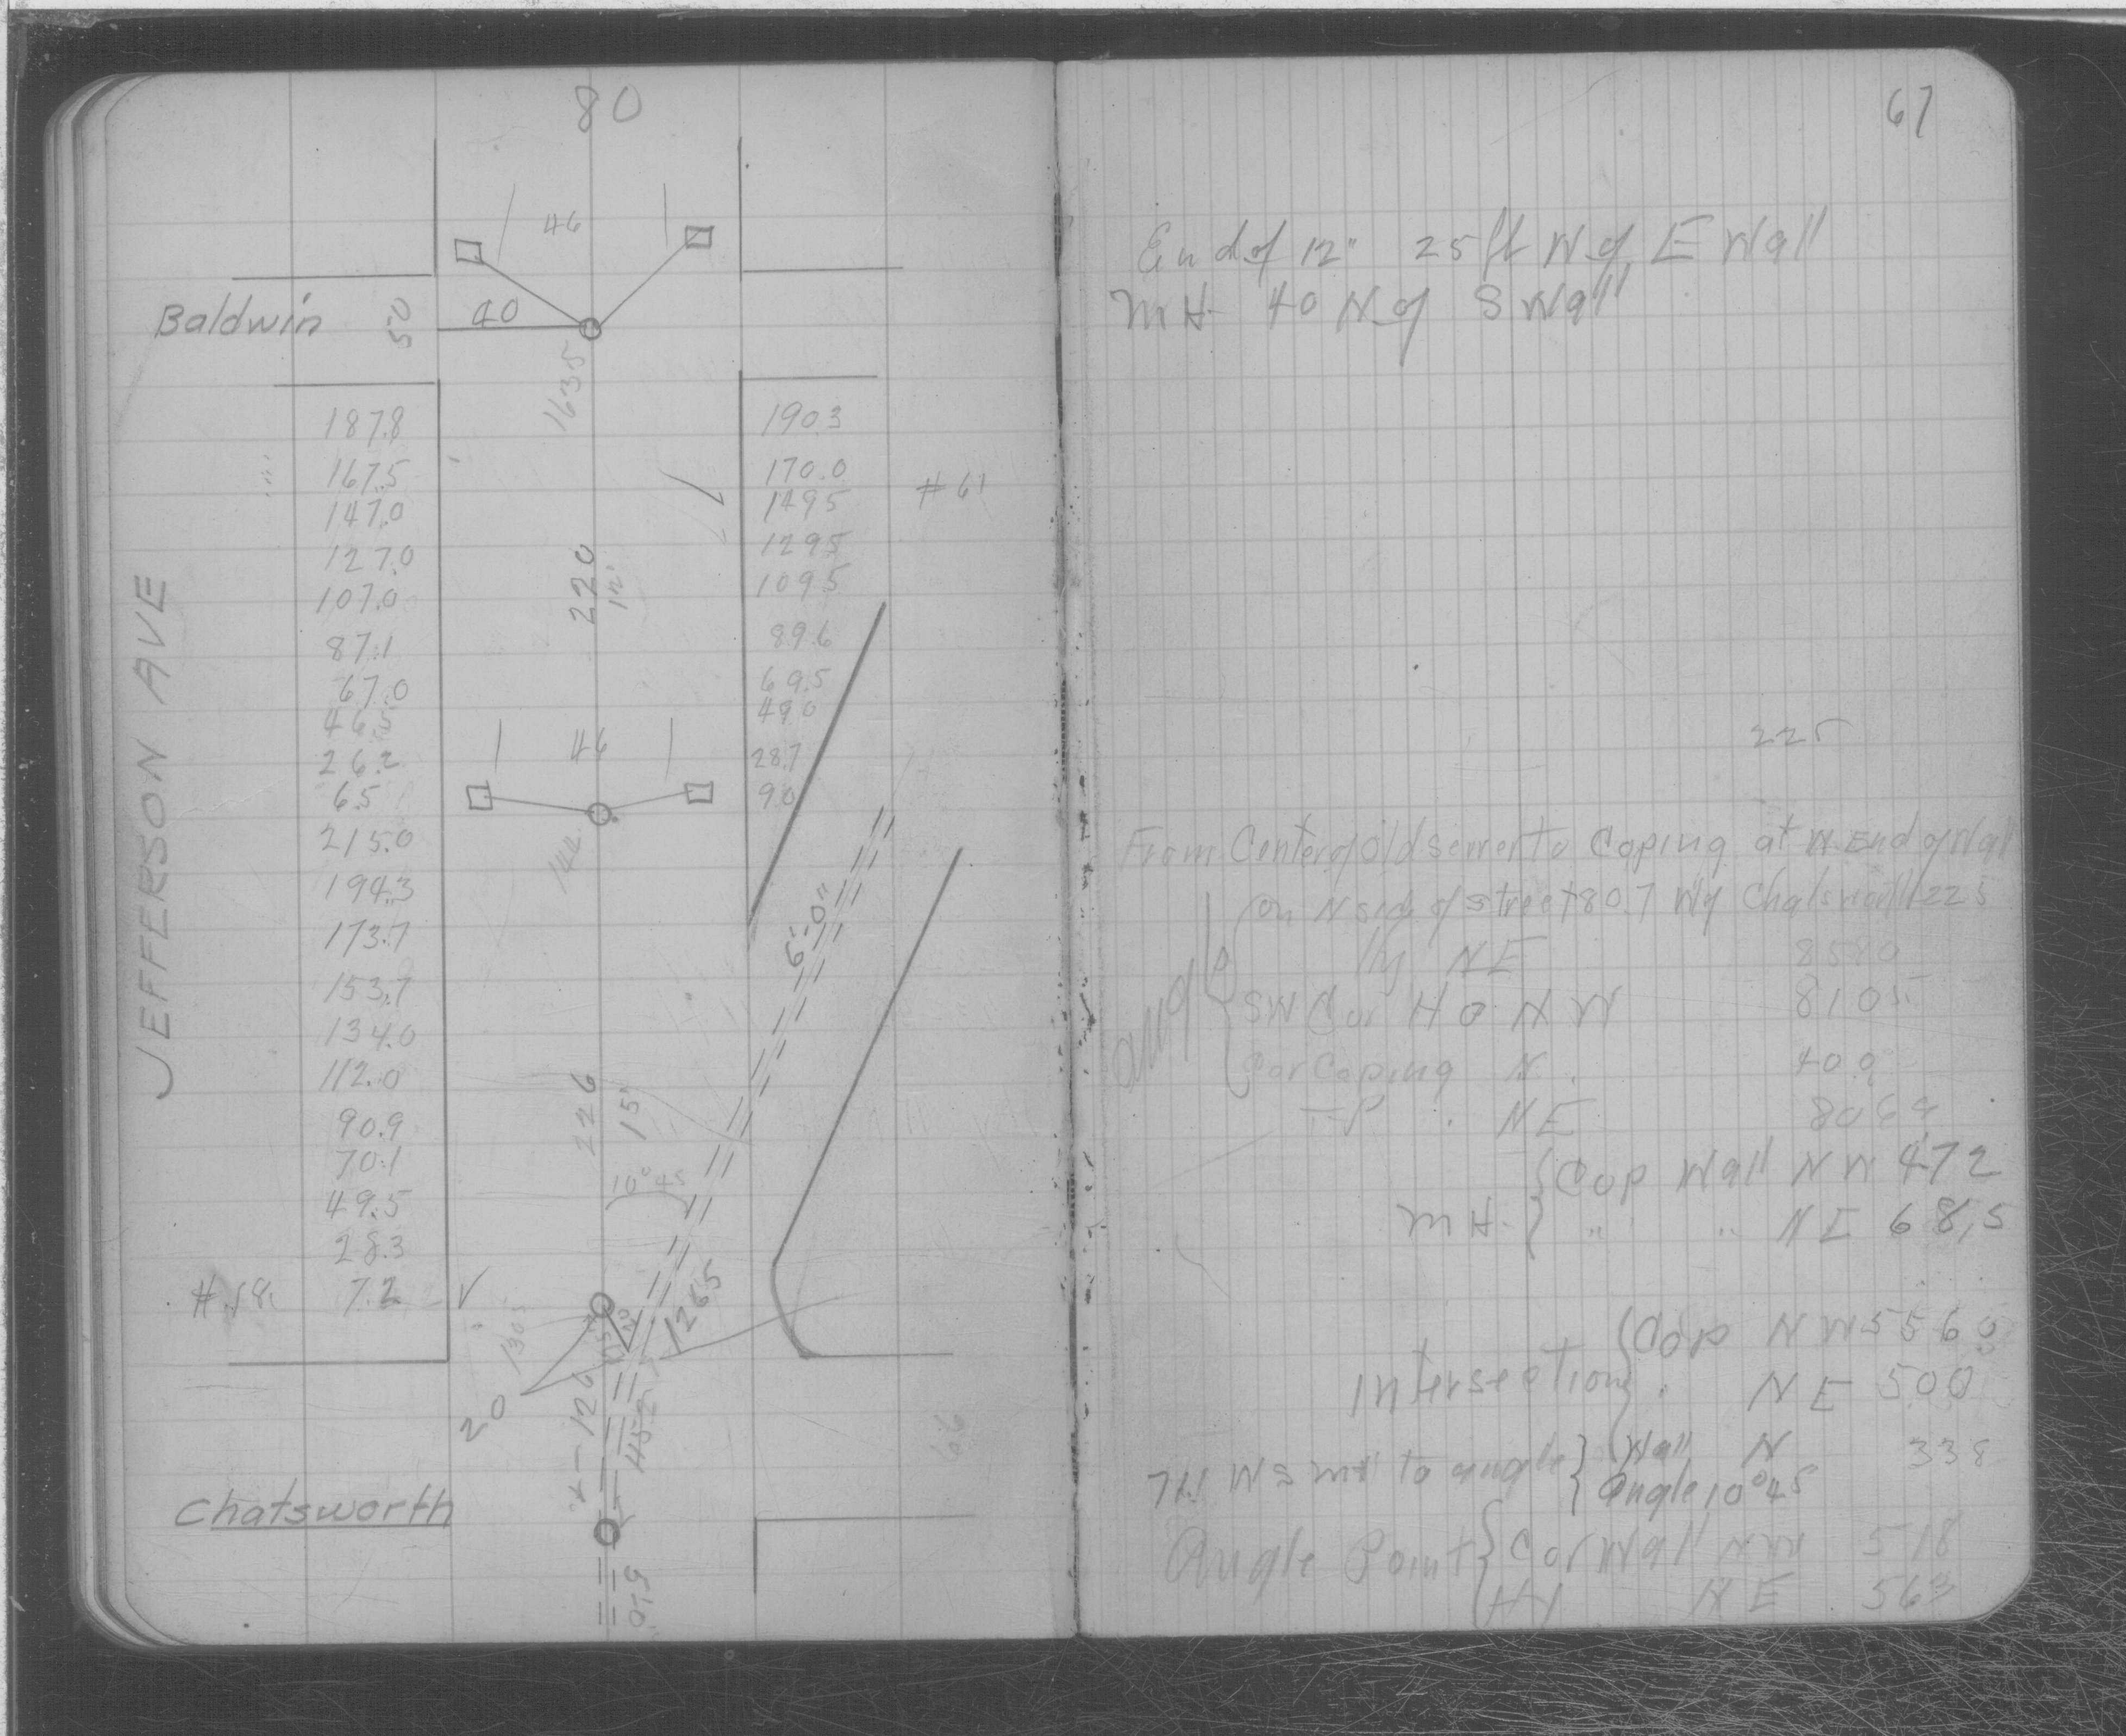 80
46
Baldwin
50
40
1635
187.8
167.5
147.0
127.0
107.0
87.1
67.0
46.5
26.2
6.5
215.0
194.3
173.7
153.7
134.0
112.0
90.9
70.1
49.5
28.3
7.2
190.3
170.0
149.5
129.5
109.5
89.6
69.5
49.0
28.7
9.0
# 61
JEFFERSON AVE
220
12"
46
144
6'-0"
226
15"
10° 45
1265
130.5
20
126
45.2
66
Chatsworth
5'-0"
67
End of 12" 25 ft W of E Wall
MH 40 N of S Wall
225
From Center of Old sewer to Coping at W. End of Wall
on N side of street 80.7 W of Chatsworth 225
Hy NE 8580
SW Cor Ho NW 8105
Cor Coping N. 40.9
T-P . NE
MH. { Cop Wall NW 472
" " NE 68.5
Intersection { Cop NW 5560
" NE 500
MH to angle } Wall N 338
Angle 10°45
Angle Point { Cor Wall NW 518
Hy NE 563